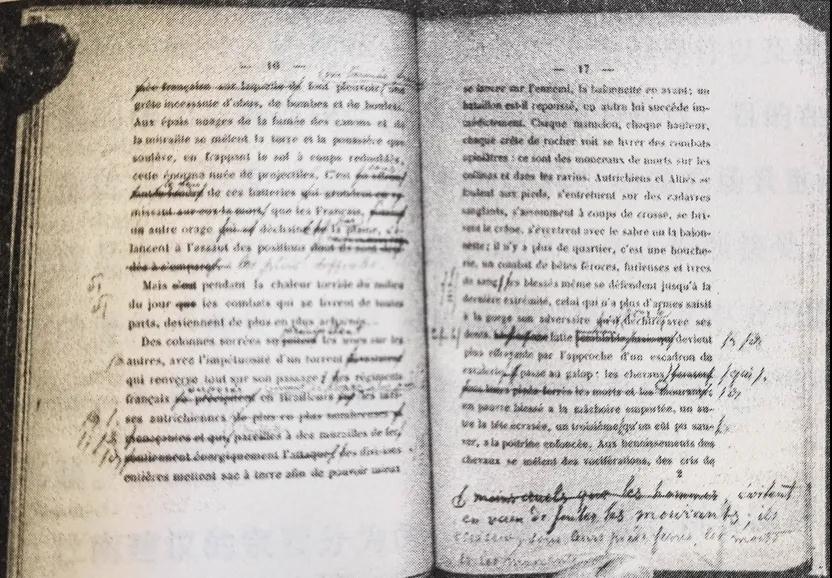 — 16 —
pluie française sur laquelle de tout pleuvoir, une
grêle incessante d'obus, de bombes et de boulets.
Aux épais nuages de la fumée des canons et de
la mitraille se mêlent la terre et la poussière que
soulève, en frappant le sol à coups redoublés,
cette énorme nuée de projectiles. C'est
de ces batteries qui grondent en vo-
missant sur eux la mort, que les Français,
un autre orage qui se déchaîne de la plaine, s'é-
lancent à l'assaut des positions dont ils sont déci-
dés à s'emparer
Mais c'est pendant la chaleur torride du milieu
du jour que les combats qui se livrent de toutes
parts, deviennent de plus en plus acharnés.
Des colonnes serrées se jettent les unes sur les
autres, avec l'impétuosité d'un torrent
qui renverse tout sur son passage; des régiments
français se précipitent en tirailleurs sur les mas-
ses autrichiennes de plus en plus nombreuses et
menaçantes et qui, pareilles à des murailles de fer,
soutiennent énergiquement l'attaque; des divisions
entières mettent sac à terre afin de pouvoir mieux
— 17 —
se lancer sur l'ennemi, la baïonnette en avant; un
bataillon est-il repoussé, un autre lui succède im-
médiatement. Chaque mamelon, chaque hauteur,
chaque crête de rocher voit se livrer des combats
opiniâtres : ce sont des monceaux de morts sur les
collines et dans les ravins. Autrichiens et Alliés se
foulent aux pieds, s'entretuent sur des cadavres
sanglants, s'assomment à coups de crosse, se bri-
sent le crâne, s'éventrent avec le sabre ou la baïon-
nette; il n'y a plus de quartier, c'est une bouche-
rie, un combat de bêtes féroces, furieuses et ivres
de sang; les blessés même se défendent jusqu'à la
dernière extrémité, celui qui n'a plus d'armes saisit
à la gorge son adversaire qu'il déchire avec ses
dents. lutte devient
plus effrayante par l'approche d'un escadron de
cavalerie, passe au galop: les chevaux
sous leurs pieds ferrés les morts et les mourants;
un pauvre blessé a la mâchoire emportée, un au-
tre la tête écrasée, un troisième qu'on eût pu sau-
ver, a la poitrine enfoncée. Aux hennissements des
chevaux se mêlent des vociférations, des cris de
moins cruels que les hommes, évitent
en vain de fouler les mourants; ils
sous leurs pieds ferrés, les morts